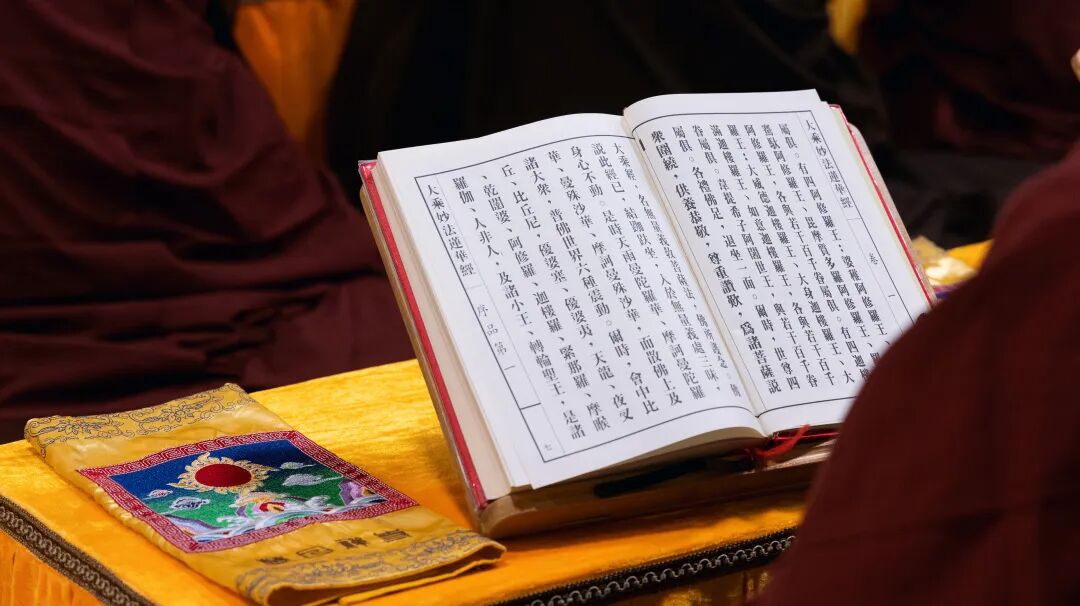 大乘妙法蓮華經 卷一
屬俱。有四阿修羅王：婆稚阿修羅王、
騫馱阿修羅王、毘摩質多羅阿修羅王、
阿修羅王、各與若干百千眷屬俱。有四迦
羅王：大威德迦樓羅王、大身迦樓羅王、大
滿迦樓羅王、如意迦樓羅王、各與若干百千
眷屬俱。韋提希子阿闍世王、與若干百千眷
屬俱。各禮佛足，退坐一面。爾時，世尊四
眾圍繞，供養恭敬，尊重讚歎，為諸菩薩說
大乘經，名無量義教菩薩法，佛所護念。佛
說此經已，結跏趺坐，入於無量義處三昧，
身心不動。是時天雨曼陀羅華、摩訶曼陀羅
華、曼殊沙華、摩訶曼殊沙華，而散佛上及
諸大眾，普佛世界六種震動。爾時，會中比
丘、比丘尼、優婆塞、優婆夷，天龍、夜叉
、乾闥婆、阿修羅、迦樓羅、緊那羅、摩睺
羅伽、人非人，及諸小王、轉輪聖王，是諸
大乘妙法蓮華經 一 序品第一 七